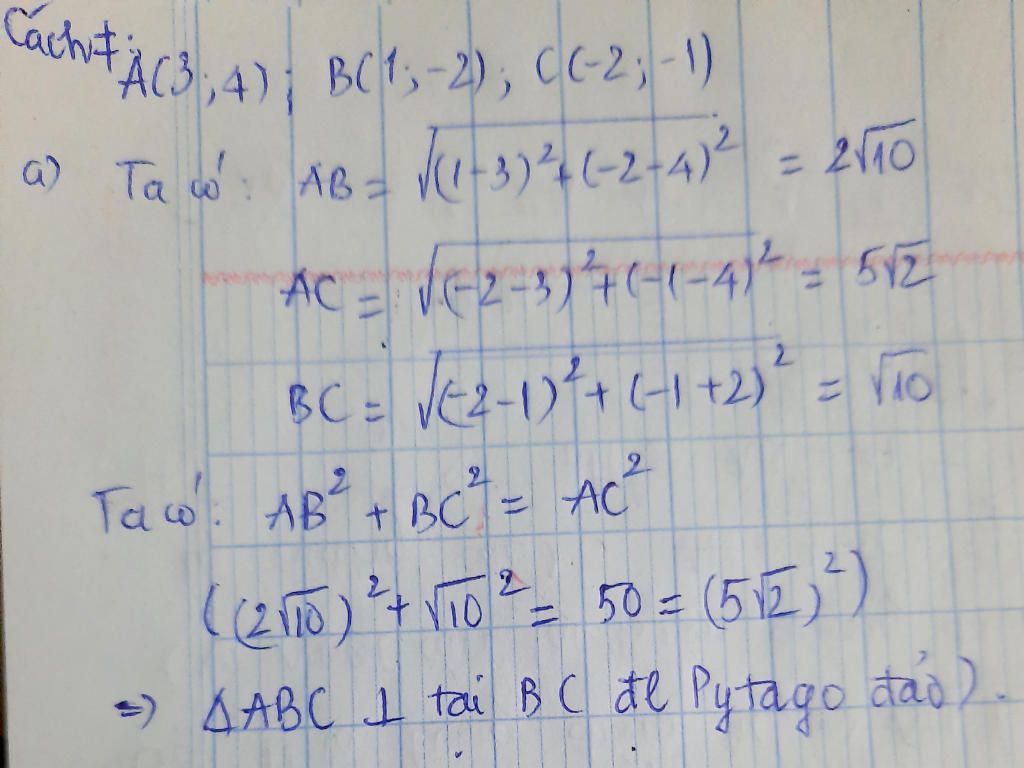 Cách 1:
A(3;4); B(1;-2); C(-2;-1)
a) Ta có: AB = √((1-3)² + (-2-4)²) = 2√10
AC = √((-2-3)² + (-1-4)²) = 5√2
BC = √((-2-1)² + (-1+2)²) = √10
Ta có: AB² + BC² = AC²
((2√10)² + √10² = 50 = (5√2)²)
=> ΔABC ⊥ tại B (đl Pytago đảo).